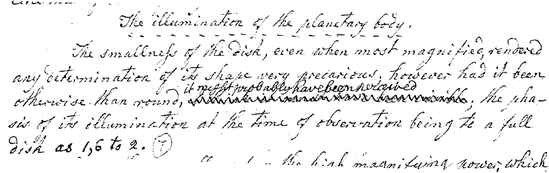 The illumination of the planetary body.
The smallness of the disk, even when most magnified, rendered
any determination of its shape very precarious, however had it been
it might probably have been perceived
otherwise than round, the pha-
sis of its illumination at the time of observation being to a full
disk as 1,6 to 2. (7)
the high magnifying power, which